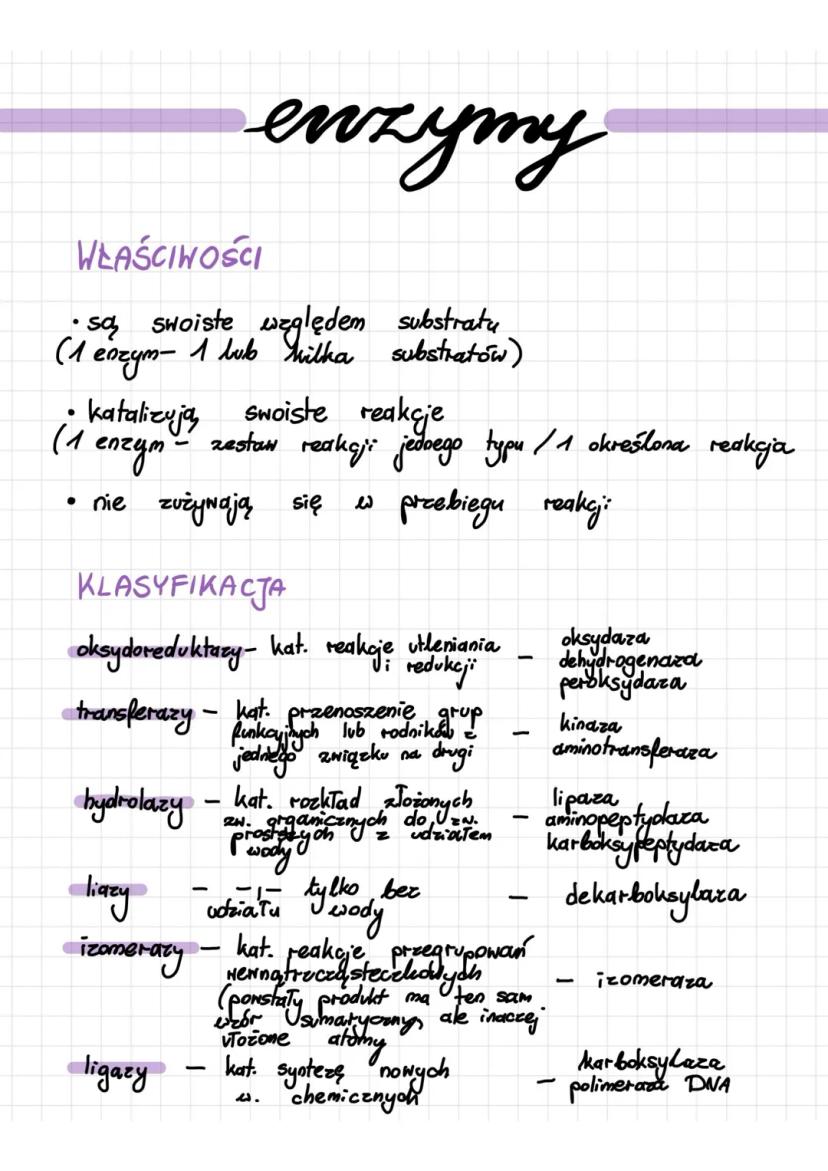 enzymy
WŁAŚCIWOŚCI
• są swoiste względem substratu
(1 enzym - 1 lub kilka substratów)
• katalizują swoiste reakcje
(1 enzym - zestaw reakcji jednego typu / 1 określona reakcja
• nie zużywają się w przebiegu reakcji
KLASYFIKACJA
oksydoreduktazy - kat. reakcje utleniania
i redukcji
- oksydaza
dehydrogenaza
peroksydaza
transferazy - kat. przenoszenie grup
funkcyjnych lub rodników z
jednego związku na drugi
- kinaza
aminotransferaza
hydrolazy - kat. rozkład złożonych
zw. organicznych do zw.
prostszych z udziałem
wody
- lipaza
aminopeptydaza
karboksypeptydaza
liazy - -,,- tylko bez
udziału wody
- dekarboksylaza
izomerazy - kat. reakcje przegrupowań
wewnątrzcząsteczkowych
(powstały produkt ma ten sam
wzór sumaryczny, ale inaczej
ułożone atomy
- izomeraza
ligazy - kat. syntezę nowych
w. chemicznych
- karboksylaza
polimeraza DNA